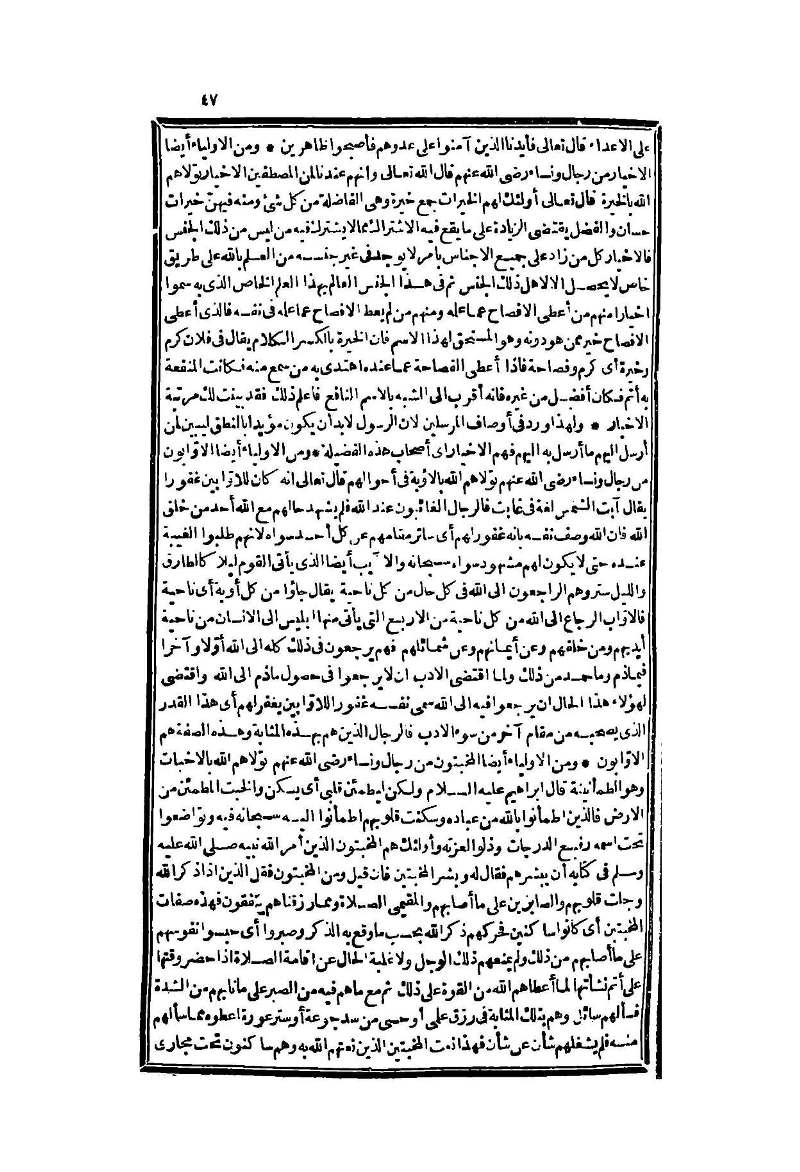 ٤٧
على الاعداء قال تعالى فأيدنا الذين آمنوا على عدوهم فأصبحوا ظاهرين * ومن الاولياء أيضا
الاخيار من رجال ونساء رضى الله عنهم قال الله تعالى وانهم عندنا لمن المصطفين الاخيار تولاهم
الله بالخيرة قال تعالى أولئك لهم الخيرات جمع خيرة وهى الفاضلة من كل شئ ومنه فيهن خيرات
حسان والفضل يقتضى الزيادة على ما يقع فيه الاشتراك مما لا يشترك فيه من ليس من ذلك الجنس
فالاخيار كل من زاد على جميع الاجناس بأمر لا يوجد فى غير جنسه من العلم بالله على طريق
خاص لا يحصل الا لاهل ذلك الجنس ثم فى هذا الجنس العالم بهذا العلم الخاص الذى به سموا
اخيارا منهم من أعطى الافصاح عما عله ومنهم من لم يعط الافصاح عما عله فى نفسه فالذى أعطى
الافصاح خير ممن هو دونه وهو المستحق لهذا الاسم فان الخيرة بالكسر الكلام يقال فى فلان كرم
وخيرة أى كرم وفصاحة فاذا أعطى الفصاحة عما عنده اهتدى به من سمع منه فكانت المنفعة
به أتم فكان أفضل من غيره فانه أقرب الى الشبه بالاسم النافع فاعلم ذلك فقد بينت لك مرتبة
الاخيار * ولهذا ورد فى أوصاف المرسلين لان الرسول لا بد أن يكون مؤيدا بالنطق ليبين لمن
أرسل اليهم ما أرسل به اليهم فهم الاخيار أى أصحاب هذه الفضيلة * ومن الاولياء أيضا الاوّابون
من رجال ونساء رضى الله عنهم تولاهم الله بالاوبة فى أحوالهم قال تعالى انه كان للاوّابين غفورا
يقال آبت الشمس لغة فى غابت فالرجال الغائبون عند الله فلم يشهد حالهم مع الله أحد من خلق
الله فان الله وصف نفسه بانه غفور لهم أى ساتر مقامهم عن كل أحد سواه لانهم طلبوا الغيبة
عنده حتى لا يكون لهم مشهود سواه سبحانه والآيب أيضا الذى يأتى القوم ليلا كالطارق
والليل ستر وهم الراجعون الى الله فى كل حال من كل ناحية يقال جاؤا من كل أوبة أى ناحية
فالاواب الرجاع الى الله من كل ناحية من الاربع التى يأتى منها ابليس الى الانسان من ناحية
أيديهم ومن خلفهم وعن أيمانهم وعن شمائلهم فهم يرجعون فى ذلك كله الى الله أوّلا وآخرا
فيما ذم وما حمد من ذلك ولما اقتضى الادب ان لا يرجعوا فى حصول ما ذم الى الله واقتضى
لهؤلاء هذا الحال ان يرجعوا فيه الى الله سمى نفسه غفورا للاوّابين يغفر لهم أى هذا القدر
الذى يصحبه من مقام آخر من سوء الادب فالرجال الذين هم بهذه المثابة وهذه الصفة هم
الاوّابون * ومن الاولياء أيضا المخبتون من رجال ونساء رضى الله عنهم تولاهم الله بالاخبات
وهو الطمأنينة قال ابراهيم عليه السلام ولكن ليطمئن قلبى أى يسكن والخبت المطمئن من
الارض فالذين اطمأنوا بالله من عباده وسكنت قلوبهم اطمأنوا اليه سبحانه فيه وتواضعوا
تحت اسمه رفيع الدرجات وذلوا لعزته وأولئك هم المخبتون الذين أمر الله نبيه صلى الله عليه
وسلم فى كتابه أن يبشرهم فقال له وبشر المخبتين فان قيل ومن المخبتون فقل الذين اذا ذكر الله
وجلت قلوبهم والصابرين على ما أصابهم والمقيمى الصلاة ومما رزقناهم ينفقون فهذه صفات
المخبتين أى كانوا ساكنين فحركهم ذكر الله بحسب ما وقع به الذكر وصبروا أى حبسوا نفوسهم
على ما أصابهم من ذلك ولم يمنعهم ذلك الوجل ولا غلبة الحال عن اقامة الصلاة اذا حضر وقتها
على أتم نشأتها لما أعطاهم الله من القوة على ذلك ثم مع ما هم فيه من الصبر على ما نابهم من الشدة
فسألهم سائل وهم بتلك المثابة فى رزق علمى أو حسى من سد جوعة أو ستر عورة اعطوه مما سألهم
منه فلم يشغلهم شأن عن شأن فهذا نعت المخبتين الذين نعتهم الله به وهم ساكنون تحت مجارى